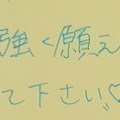 強く願え
て下さい♡